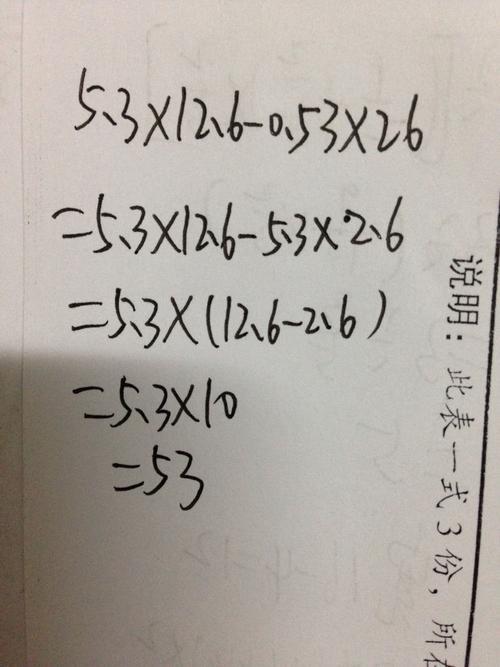 5.3×12.6-0.53×26
=5.3×12.6-5.3×2.6
=5.3×(12.6-2.6)
=5.3×10
=53
说明：此表一式3份，所